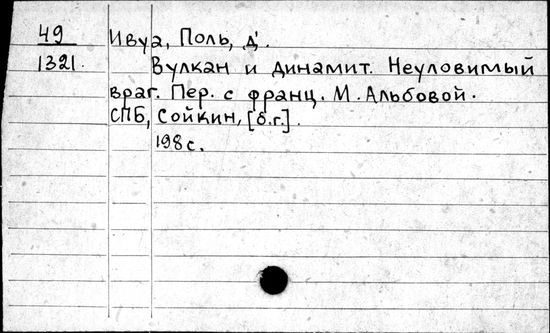 49 Ивуа, Поль, д'.
1321. Вулкан и динамит. Неуловимый
враг. Пер. с франц. М. Альбовой.
СПБ, Сойкин, [б.г.].
198 с.